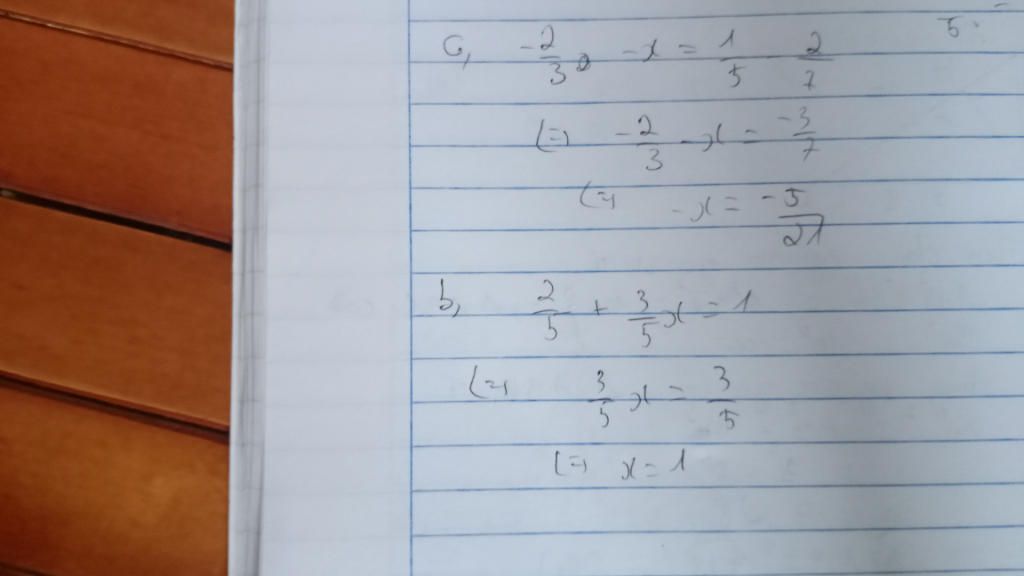 c, -2/3 - x = 1/5 - 2/7
(=) -2/3 - x = -3/7
(=) - x = -5/21
b, 2/5 + 3/5 x = 1
(=) 3/5 x = 3/5
(=) x = 1